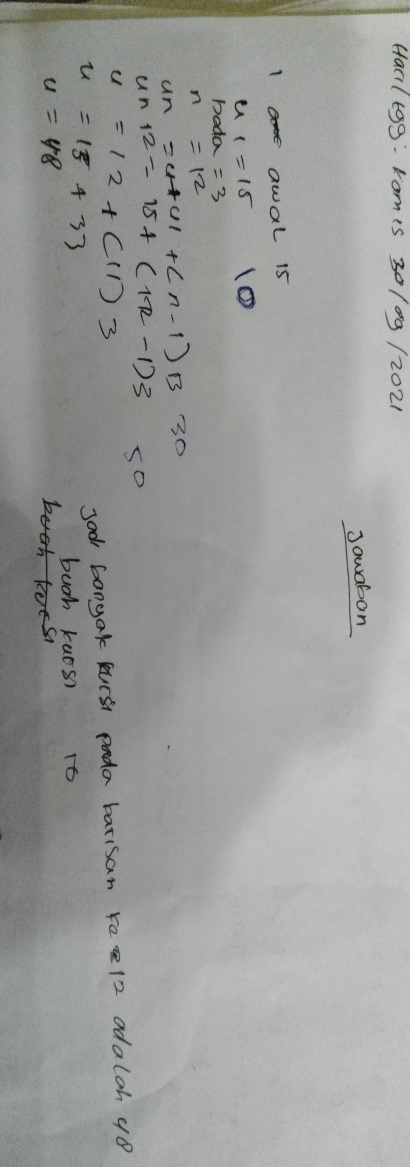 Hari/tgg: kamis 30/09/2021
Jawaban
1 awal 15
u1 = 15 10
beda = 3
n = 12
un = u1 + (n-1)B 30
un 12 = 15 + (12-1)3 50
u = 12 + (11) 3
u = 15 + 33
u = 48
Jadi banyak kursi pada barisan ke 12 adalah 48
buah kursi 10
buah kursi